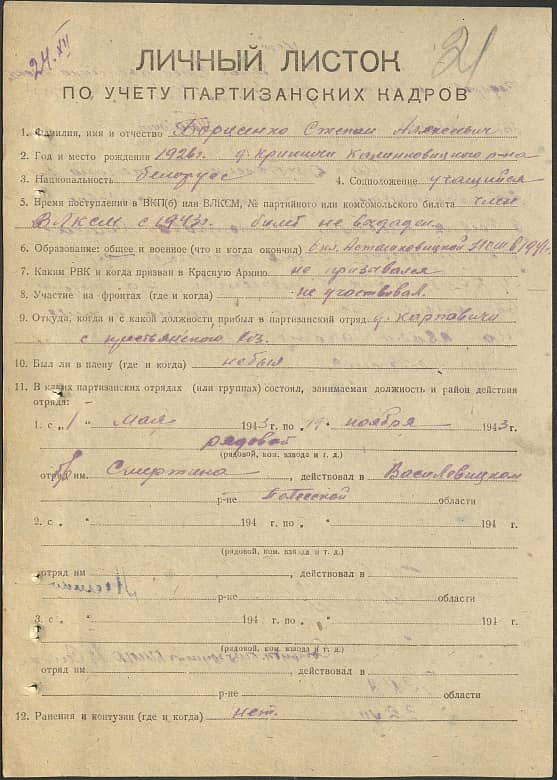 24.XII
21
ЛИЧНЫЙ ЛИСТОК
ПО УЧЕТУ ПАРТИЗАНСКИХ КАДРОВ
1. Фамилия, имя и отчество Борисенко Степан
2. Год и место рождения 1926г. д. Криничи Калинковицкого р-на
3. Национальность белорус 4. Соцположение учащийся
5. Время поступления в ВКП(б) или ВЛКСМ, № партийного или комсомольского билета член
ВЛКСМ с 1943г. билет не выдаден
6. Образование: общее и военное (что и когда окончил) 6 кл. НСШ в 1941г.
7. Каким РВК и когда призван в Красную Армию не призывался
8. Участие на фронтах (где и когда) не участвовал.
9. Откуда, когда и с какой должности прибыл в партизанский отряд д. Карповичи
с крестьянского хоз.
10. Был ли в плену (где и когда) не был
11. В каких партизанских отрядах (или группах) состоял, занимаемая должность и район действия
отряда:
1. с „1" мая 1943 г. по „19" ноября 1943
рядовой
(рядовой, ком. взвода и т. д.)
отряд им. Смертина, действовал в Василевицком
р-не Полесской области
2. с „ " 194 г. по „ " 194 г.
(рядовой, ком. взвода и т. д.)
отряд им , действовал в
р-не области
3. с „ " 194 г. по „ " 194 г.
(рядовой, ком. взвода и т. д.)
отряд им. , действовал в
р-не области
12. Ранения и контузии (где и когда) нет.